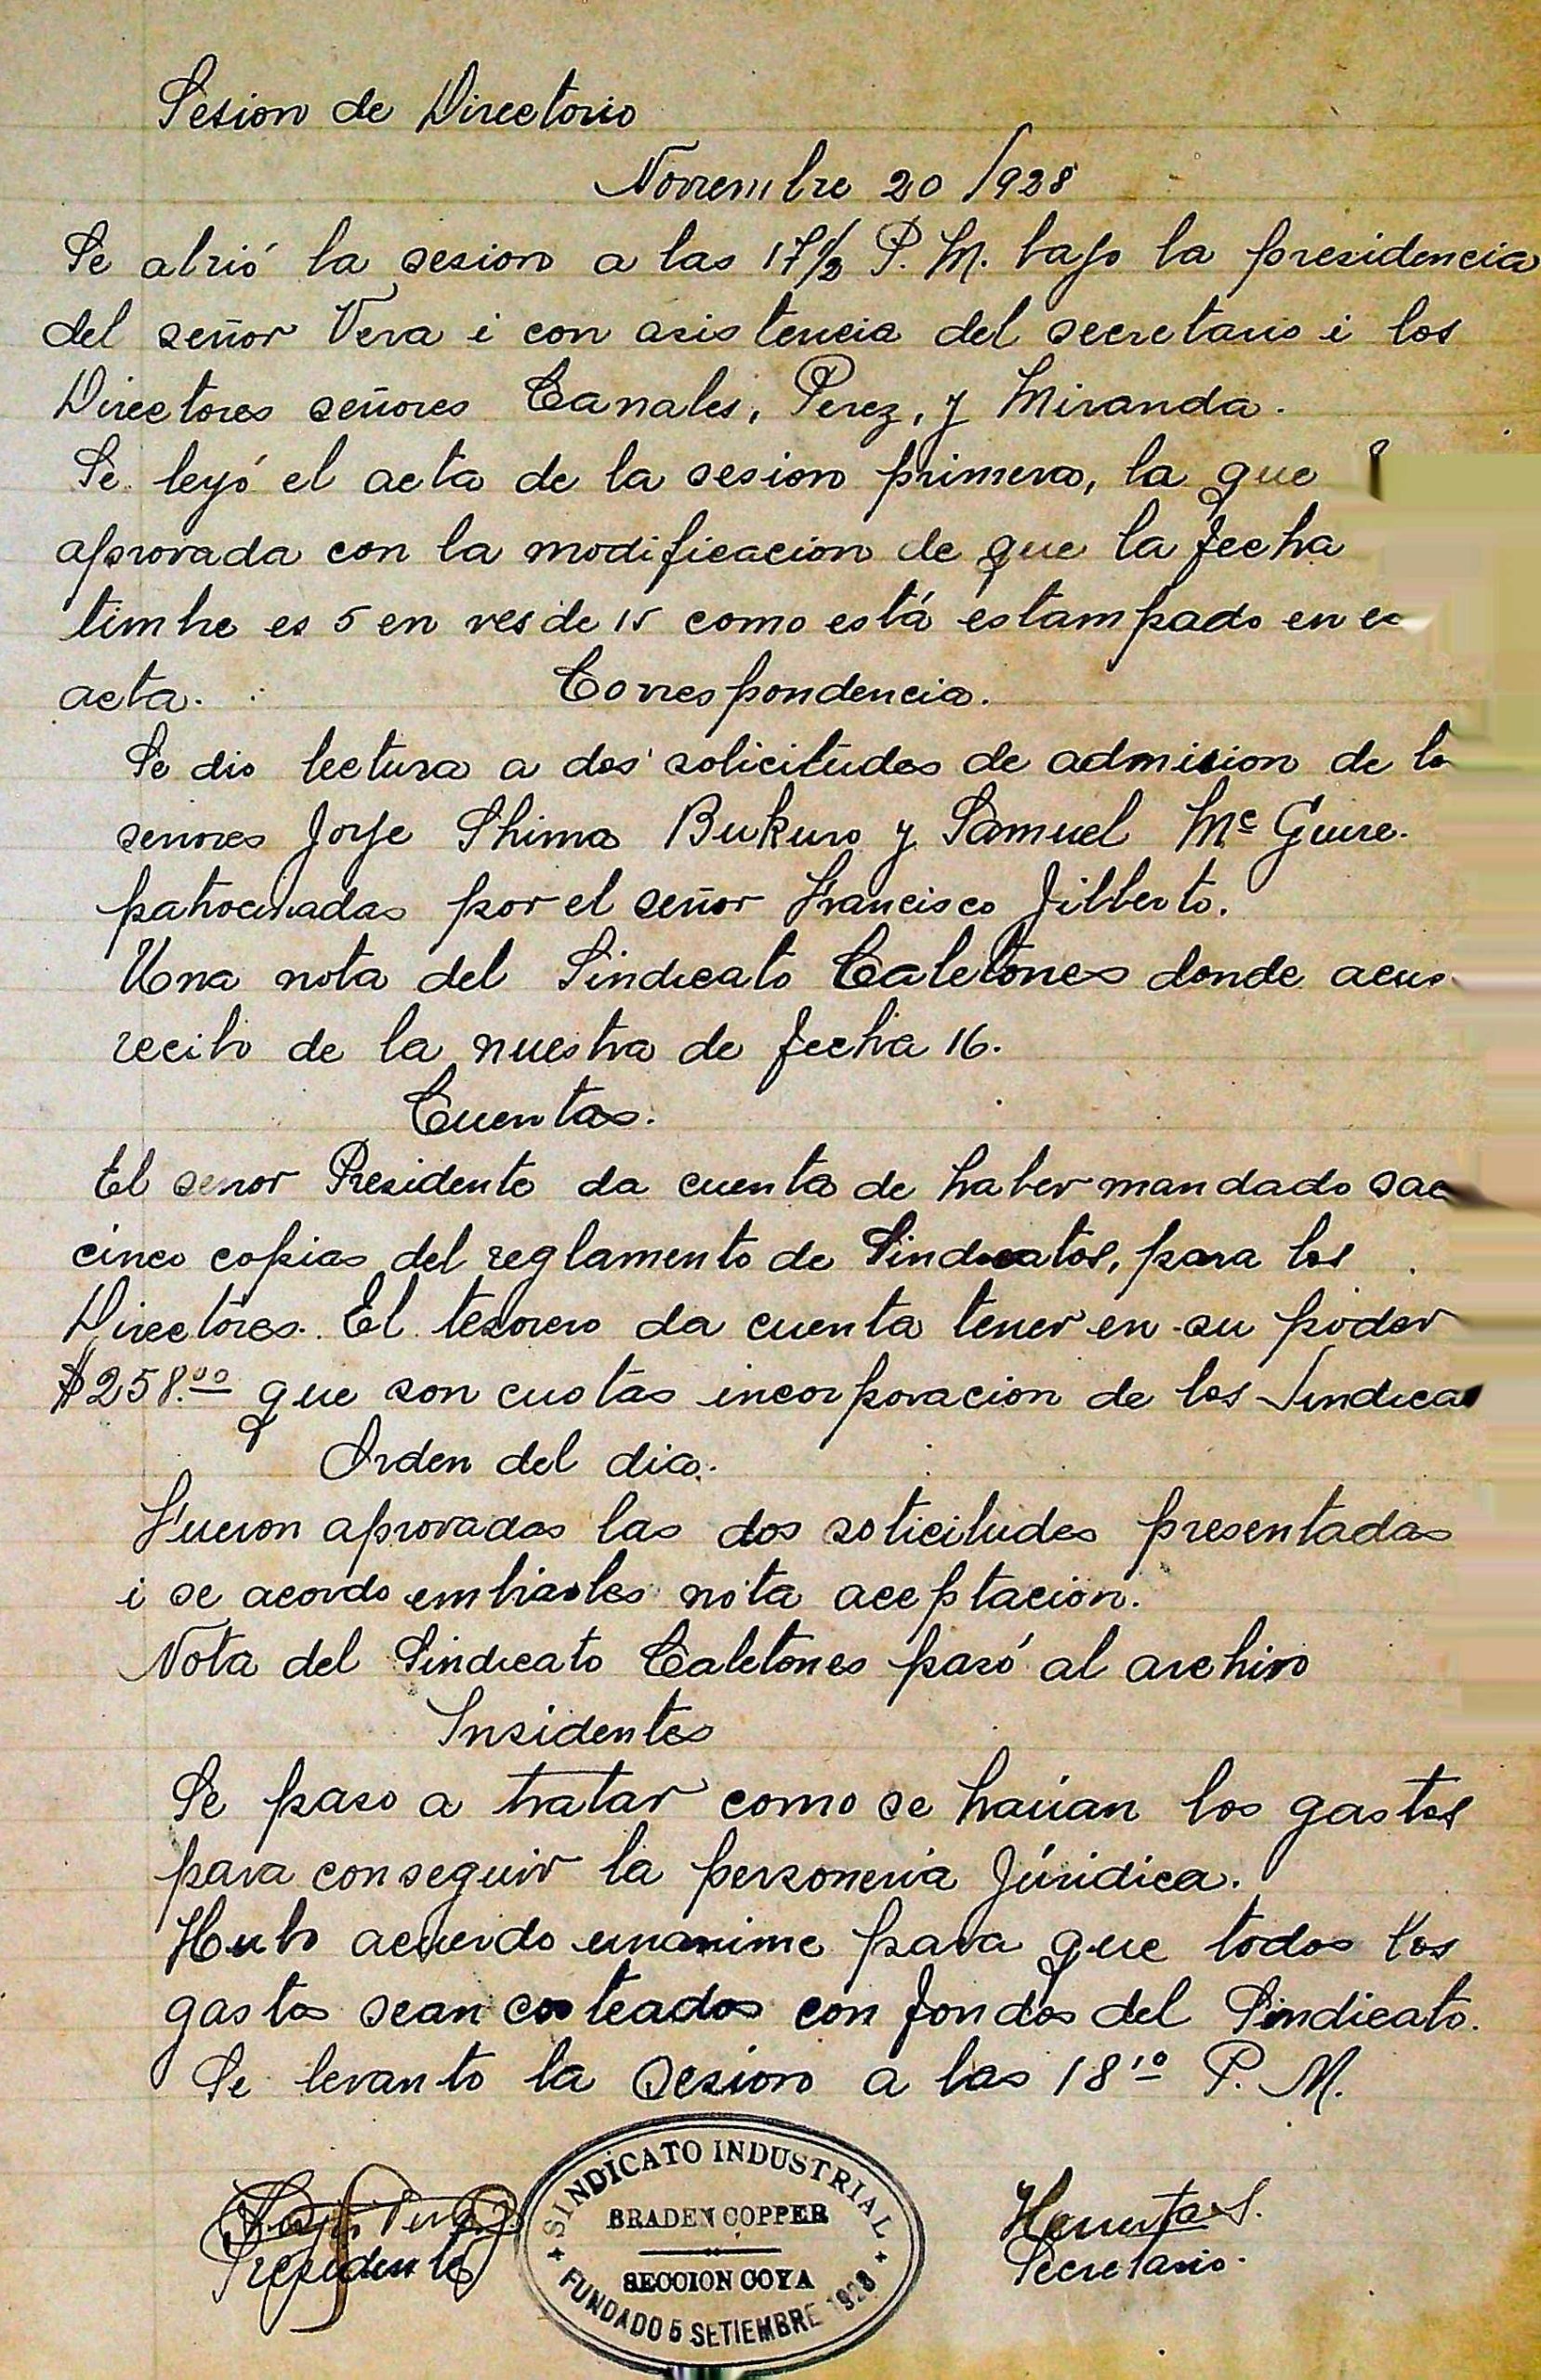 Sesion de Directorio
Noviembre 20/928
Se abrió la sesion a las 17½ P. M. bajo la presidencia
del señor Vera i con asistencia del secretario i los
Directores señores Canales, Perez, y Miranda.
Se leyó el acta de la sesion primera, la que
aprovada con la modificacion de que la fecha
timbre es 5 en ves de 15 como está estampado en
acta.
Correspondencia.
Se dio lectura a dos solicitudes de admision de lo
señores Jorje Shima Bukuro y Samuel Mc Guire.
patrocinadas por el señor Francisco Jilberto.
Una nota del Sindicato Caletones donde acus
recibo de la nuestra de fecha 16.
Cuentas.
El señor Presidente da cuenta de haber mandado sac
cinco copias del reglamento de Sindicatos, para los
Directores. El tesorero da cuenta tener en su poder
$258.00 que son cuotas incorporacion de los Sindica
Orden del dia.
Fueron aprovadas las dos solicitudes presentadas
i se acordo embiarles nota aceptacion.
Nota del Sindicato Caletones pasó al archivo
Insidentes
Se paso a tratar como se harian los gastos
para conseguir la personeria Júridica.
Hubo acuerdo unanime para que todos los
gastos sean costeados con fondos del Sindicato.
Se levanto la Sesion a las 18 10 P. M.
SINDICATO INDUSTRIAL
BRADEN COPPER
SECCION COYA
FUNDADO 5 SETIEMBRE 1928
Presidente
Huerta S.
Secretario.